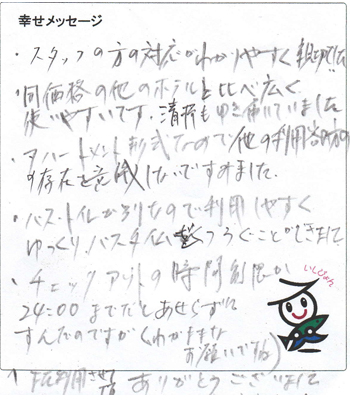 幸せメッセージ
・スタッフの方の対応がわかりやすく親切でした
・同価格の他のホテルと比べ広く
使いやすいです。清掃も行き届いていました
・アパートメント形式なので他の利用客の方の
の存在を意識しないですみました。
・バス・トイレが別なので利用しやすく
ゆっくりバスタイムくつろぐことができました
・チェックアウトの時間制限が
いしぴょん
24:00までだとあせらずに
すんだのですが(わがままな
お願いですね)
利用させて
ありがとうございました